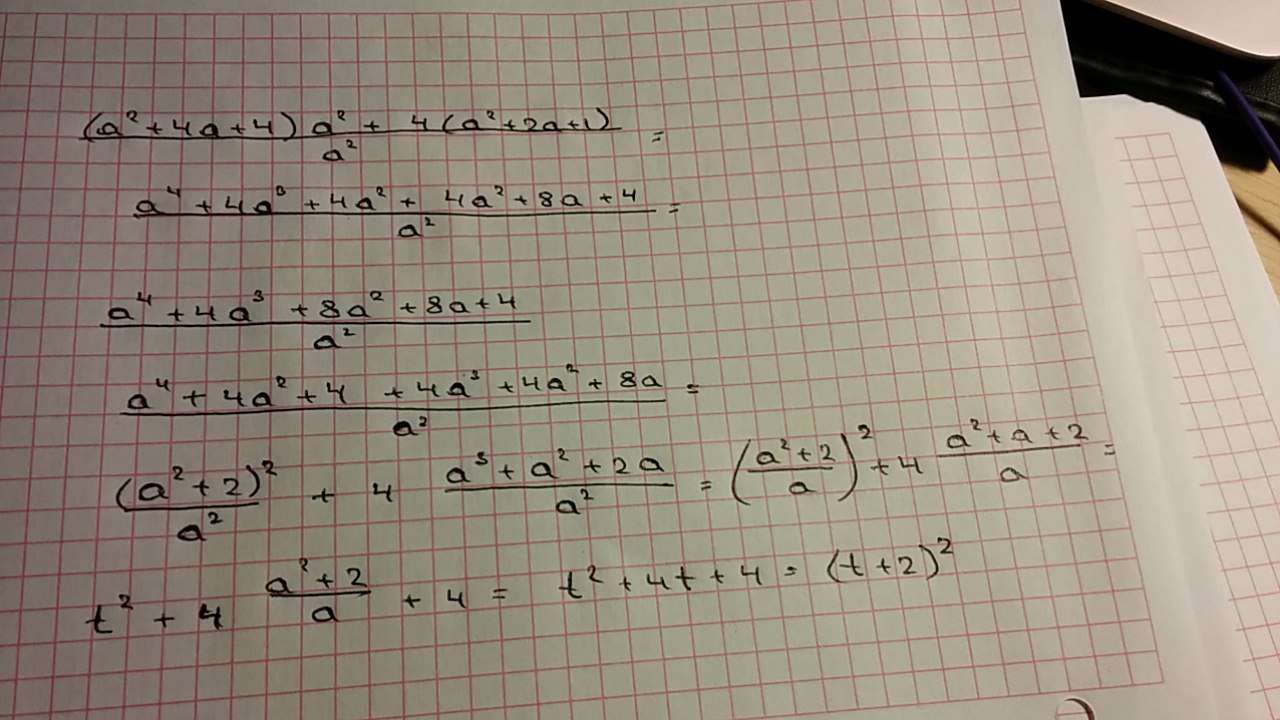 (a²+4a+4)a² + 4(a²+2a+1) / a² =
a⁴ + 4a³ + 4a² + 4a² + 8a + 4 / a² =
a⁴ + 4a³ + 8a² + 8a + 4 / a²
a⁴ + 4a² + 4 + 4a³ + 4a² + 8a / a² =
(a²+2)² / a² + 4 a³ + a² + 2a / a² = (a²+2 / a)² + 4 a² + a + 2 / a =
t² + 4 a² + 2 / a + 4 = t² + 4t + 4 = (t + 2)²